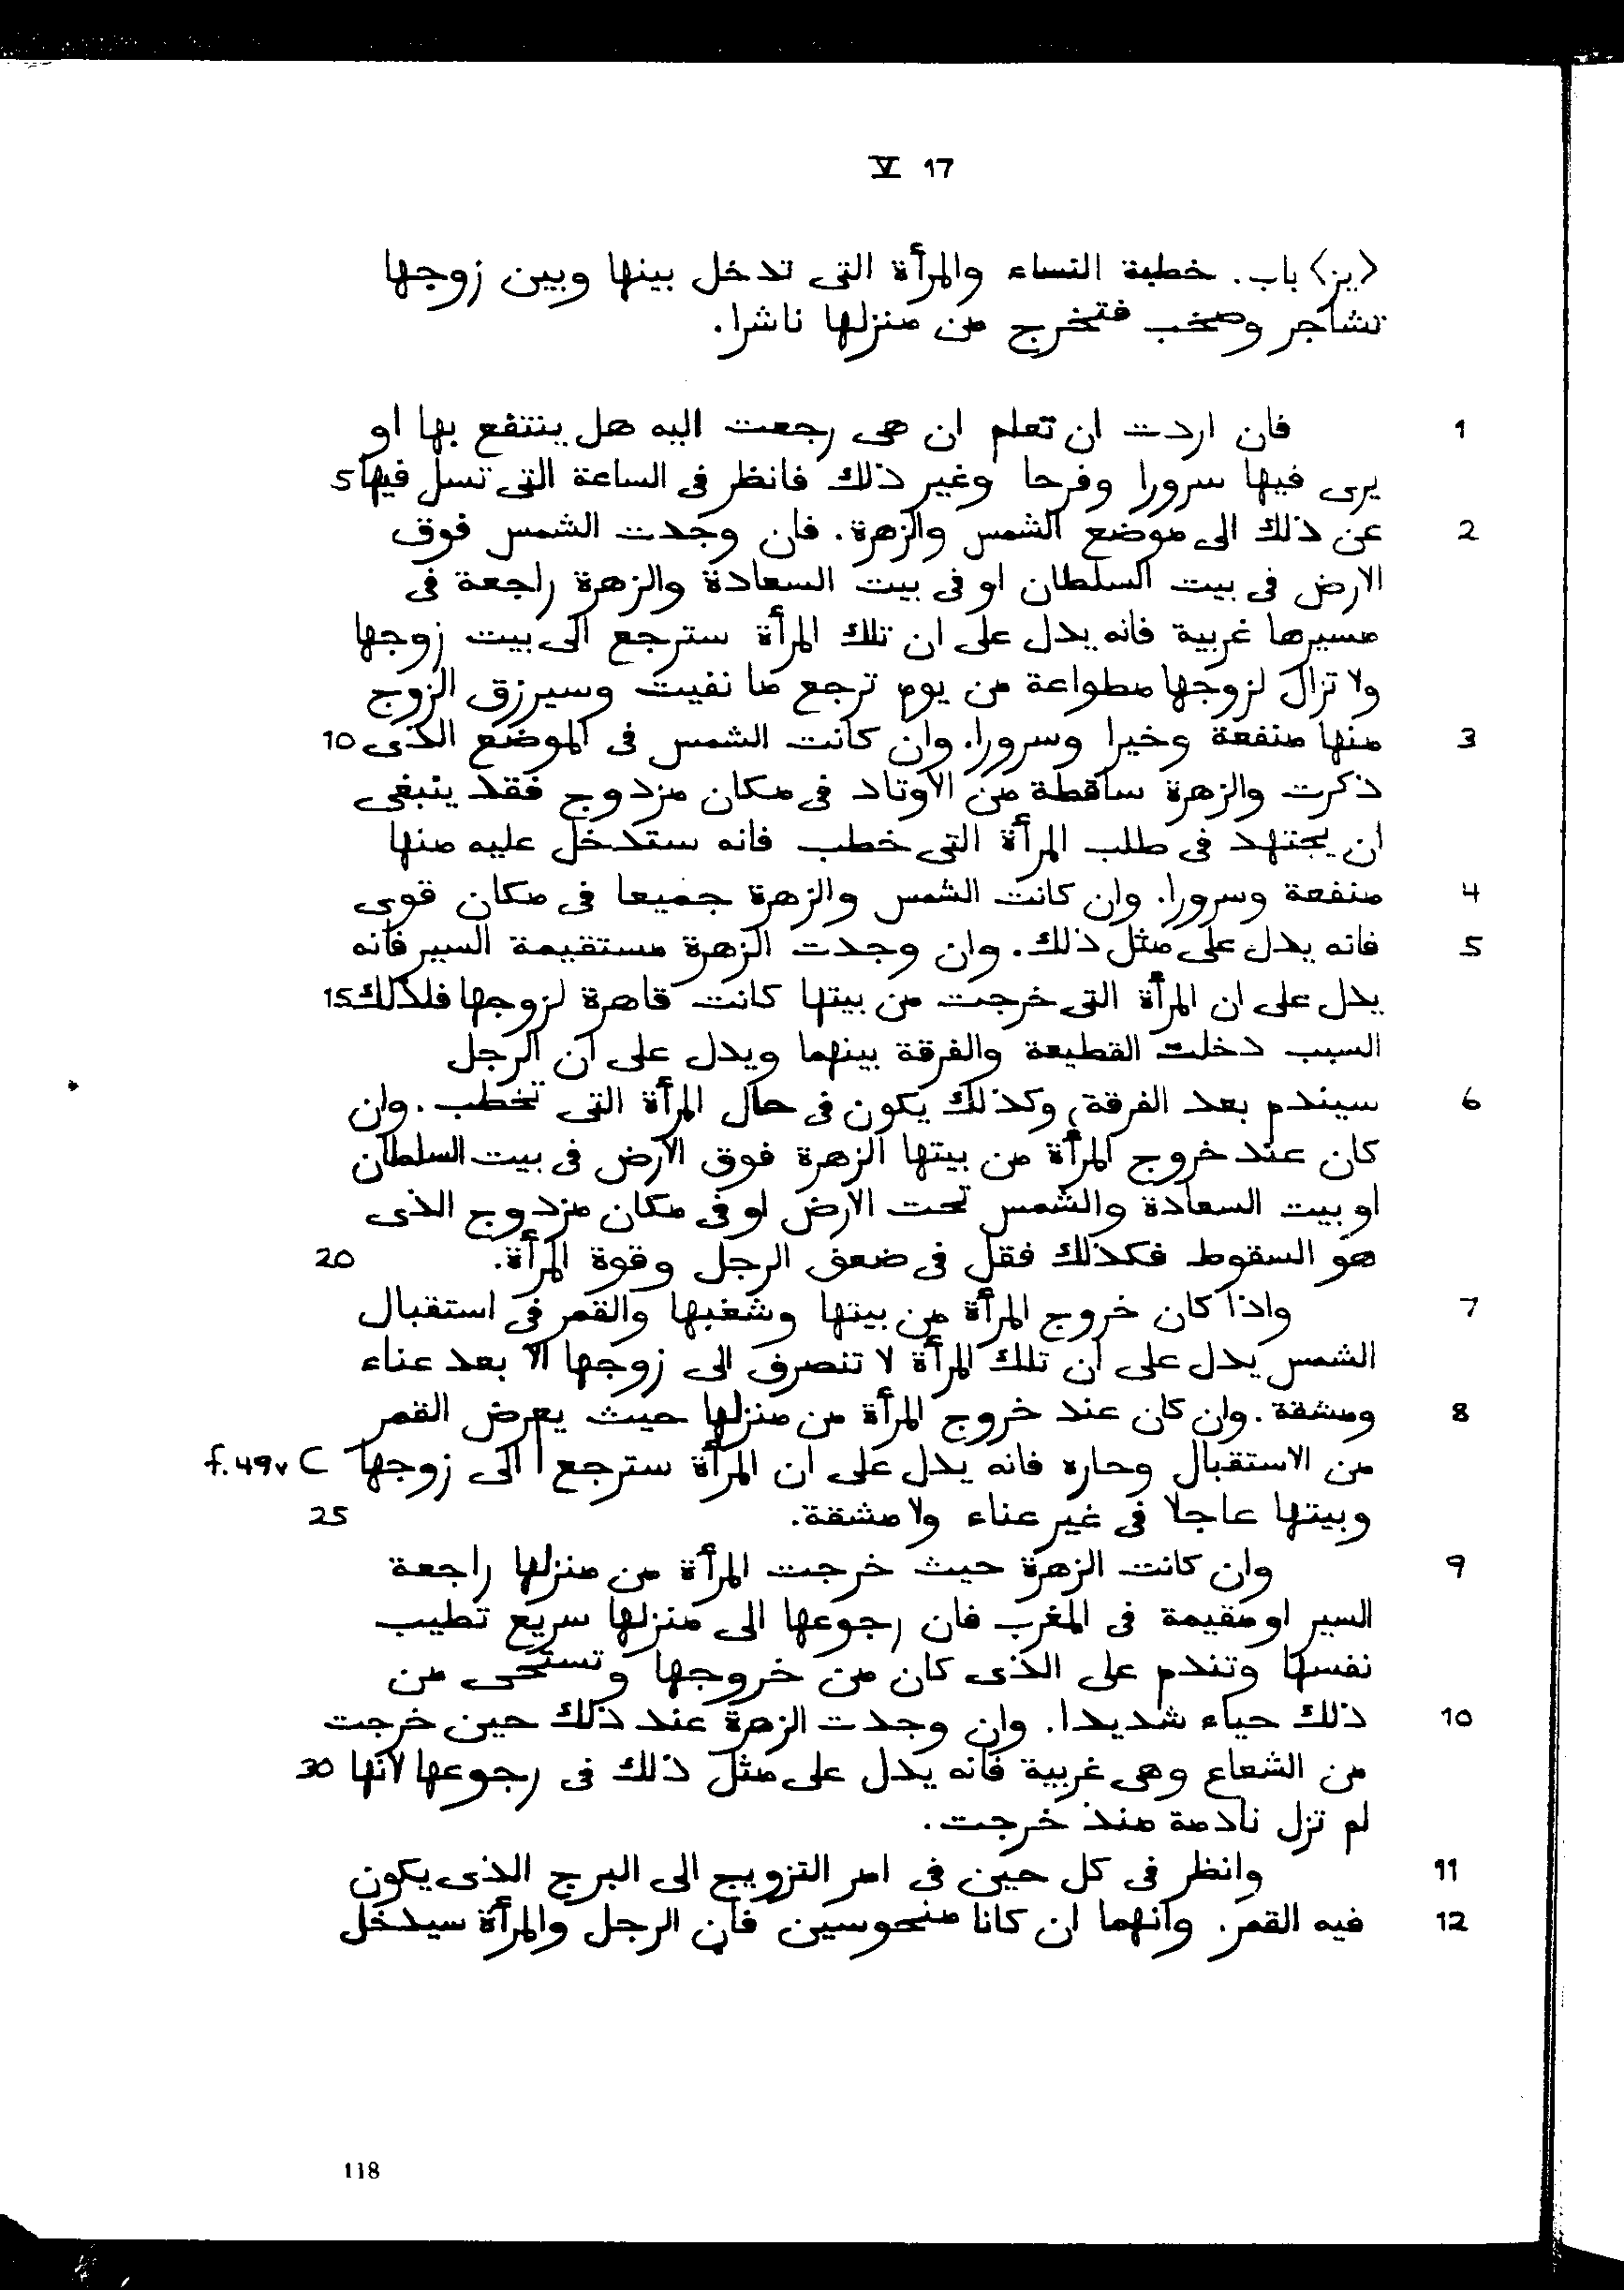 V 17
<يز> باب. خطبة النساء والمرأة التى تدخل بينها وبين زوجها
تشاجر وصخب فتخرج من منزلها ناشرا.
1 فان اردت ان تعلم ان هى رجعت اليه هل ينتفع بها او
يرى فيها سرورا وفرحا وغير ذلك فانظر فى الساعة التى تسل فيها 5
2 عن ذلك الى موضع الشمس والزهرة. فان وجدت الشمس فوق
الارض فى بيت السلطان او فى بيت السعادة والزهرة راجعة فى
مسيرها غربية فانه يدل على ان تلك المرأة سترجع الى بيت زوجها
ولا تزال لزوجها مطواعة من يوم ترجع ما نفيت وسيرزق الزوج
3 منها منفعة وخيرا وسرورا. وان كانت الشمس فى الموضع الذى 10
ذكرت والزهرة ساقطة من الاوتاد فى مكان مزدوج فقد ينبغى
ان يجتهد فى طلب المرأة التى خطب فانه ستدخل عليه منها
4 منفعة وسرورا. وان كانت الشمس والزهرة جميعا فى مكان قوى
5 فانه يدل على مثل ذلك. وان وجدت الزهرة مستقيمة السير فانه
يدل على ان المرأة التى خرجت من بيتها كانت قاهرة لزوجها فلذلك 15
السبب دخلت القطيعة والفرقة بينهما ويدل على ان الرجل
6 سيندم بعد الفرقة، وكذلك يكون فى حال المرأة التى تخطب. وان
كان عند خروج المرأة من بيتها الزهرة فوق الارض فى بيت السلطان
او بيت السعادة والشمس تحت الارض او فى مكان مزدوج الذى
هو السقوط فكذلك فقل فى ضعف الرجل وقوة المرأة. 20
7 واذا كان خروج المرأة من بيتها وشغبها والقمر فى استقبال
الشمس يدل على ان تلك المرأة لا تنصرف الى زوجها الا بعد عناء
8 ومشقة. وان كان عند خروج المرأة من منزلها حيث يعرض القمر
من الاستقبال وحاره فانه يدل على ان المرأة سترجع | الى زوجها f. 49v C
وبيتها عاجلا فى غير عناء ولا مشقة. 25
9 وان كانت الزهرة حيث خرجت المرأة من منزلها راجعة
السير او مقيمة فى المغرب فان رجوعها الى منزلها سريع تطيب
نفسها وتندم على الذى كان من خروجها وتستحى من
10 ذلك حياء شديدا. وان وجدت الزهرة عند ذلك حين خرجت
من الشعاع وهى غربية فانه يدل على مثل ذلك فى رجوعها لانها 30
لم تزل نادمة منذ خرجت.
11 وانظر فى كل حين فى امر التزويج الى البرج الذى يكون
12 فيه القمر. وانهما ان كانا منحوسين فان الرجل والمرأة سيدخل
118